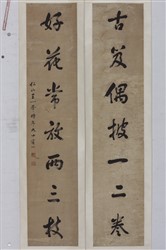 古笈偶披一二卷
好花常放兩三枝